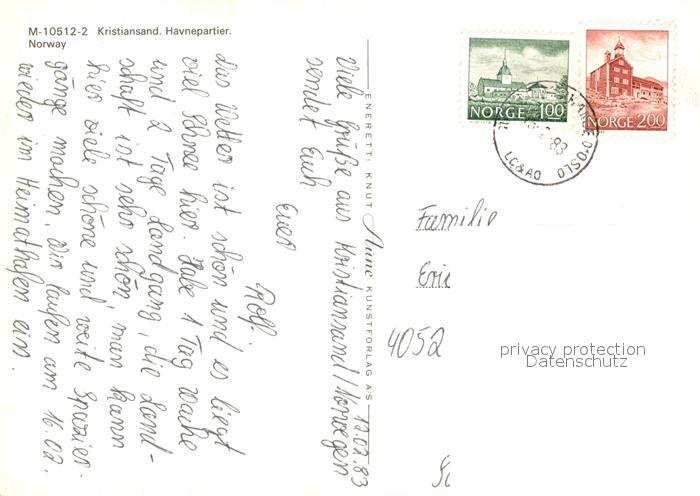 M-10512-2 Kristiansand. Havnepartier.
Norway
12.02.83
Viele Grüße aus Kristiansand/Norwegen
sendet Euch
Euer
Rolf.
Das Wetter ist schön und es liegt
viel Schnee hier. Habe 1 Tag Wache
und 2 Tage Landgang, die Land-
schaft ist sehr schön, man kann
hier viele schöne und weite Spazier-
gänge machen. Wir laufen am 16.02.
wieder im Heimathafen ein.
ENERETT: KNUT Aune KUNSTFORLAG A/S
NORGE 100
NORGE 200
83
OSLO
LC&AO
Familie
Eric
4052
privacy protection
Datenschutz